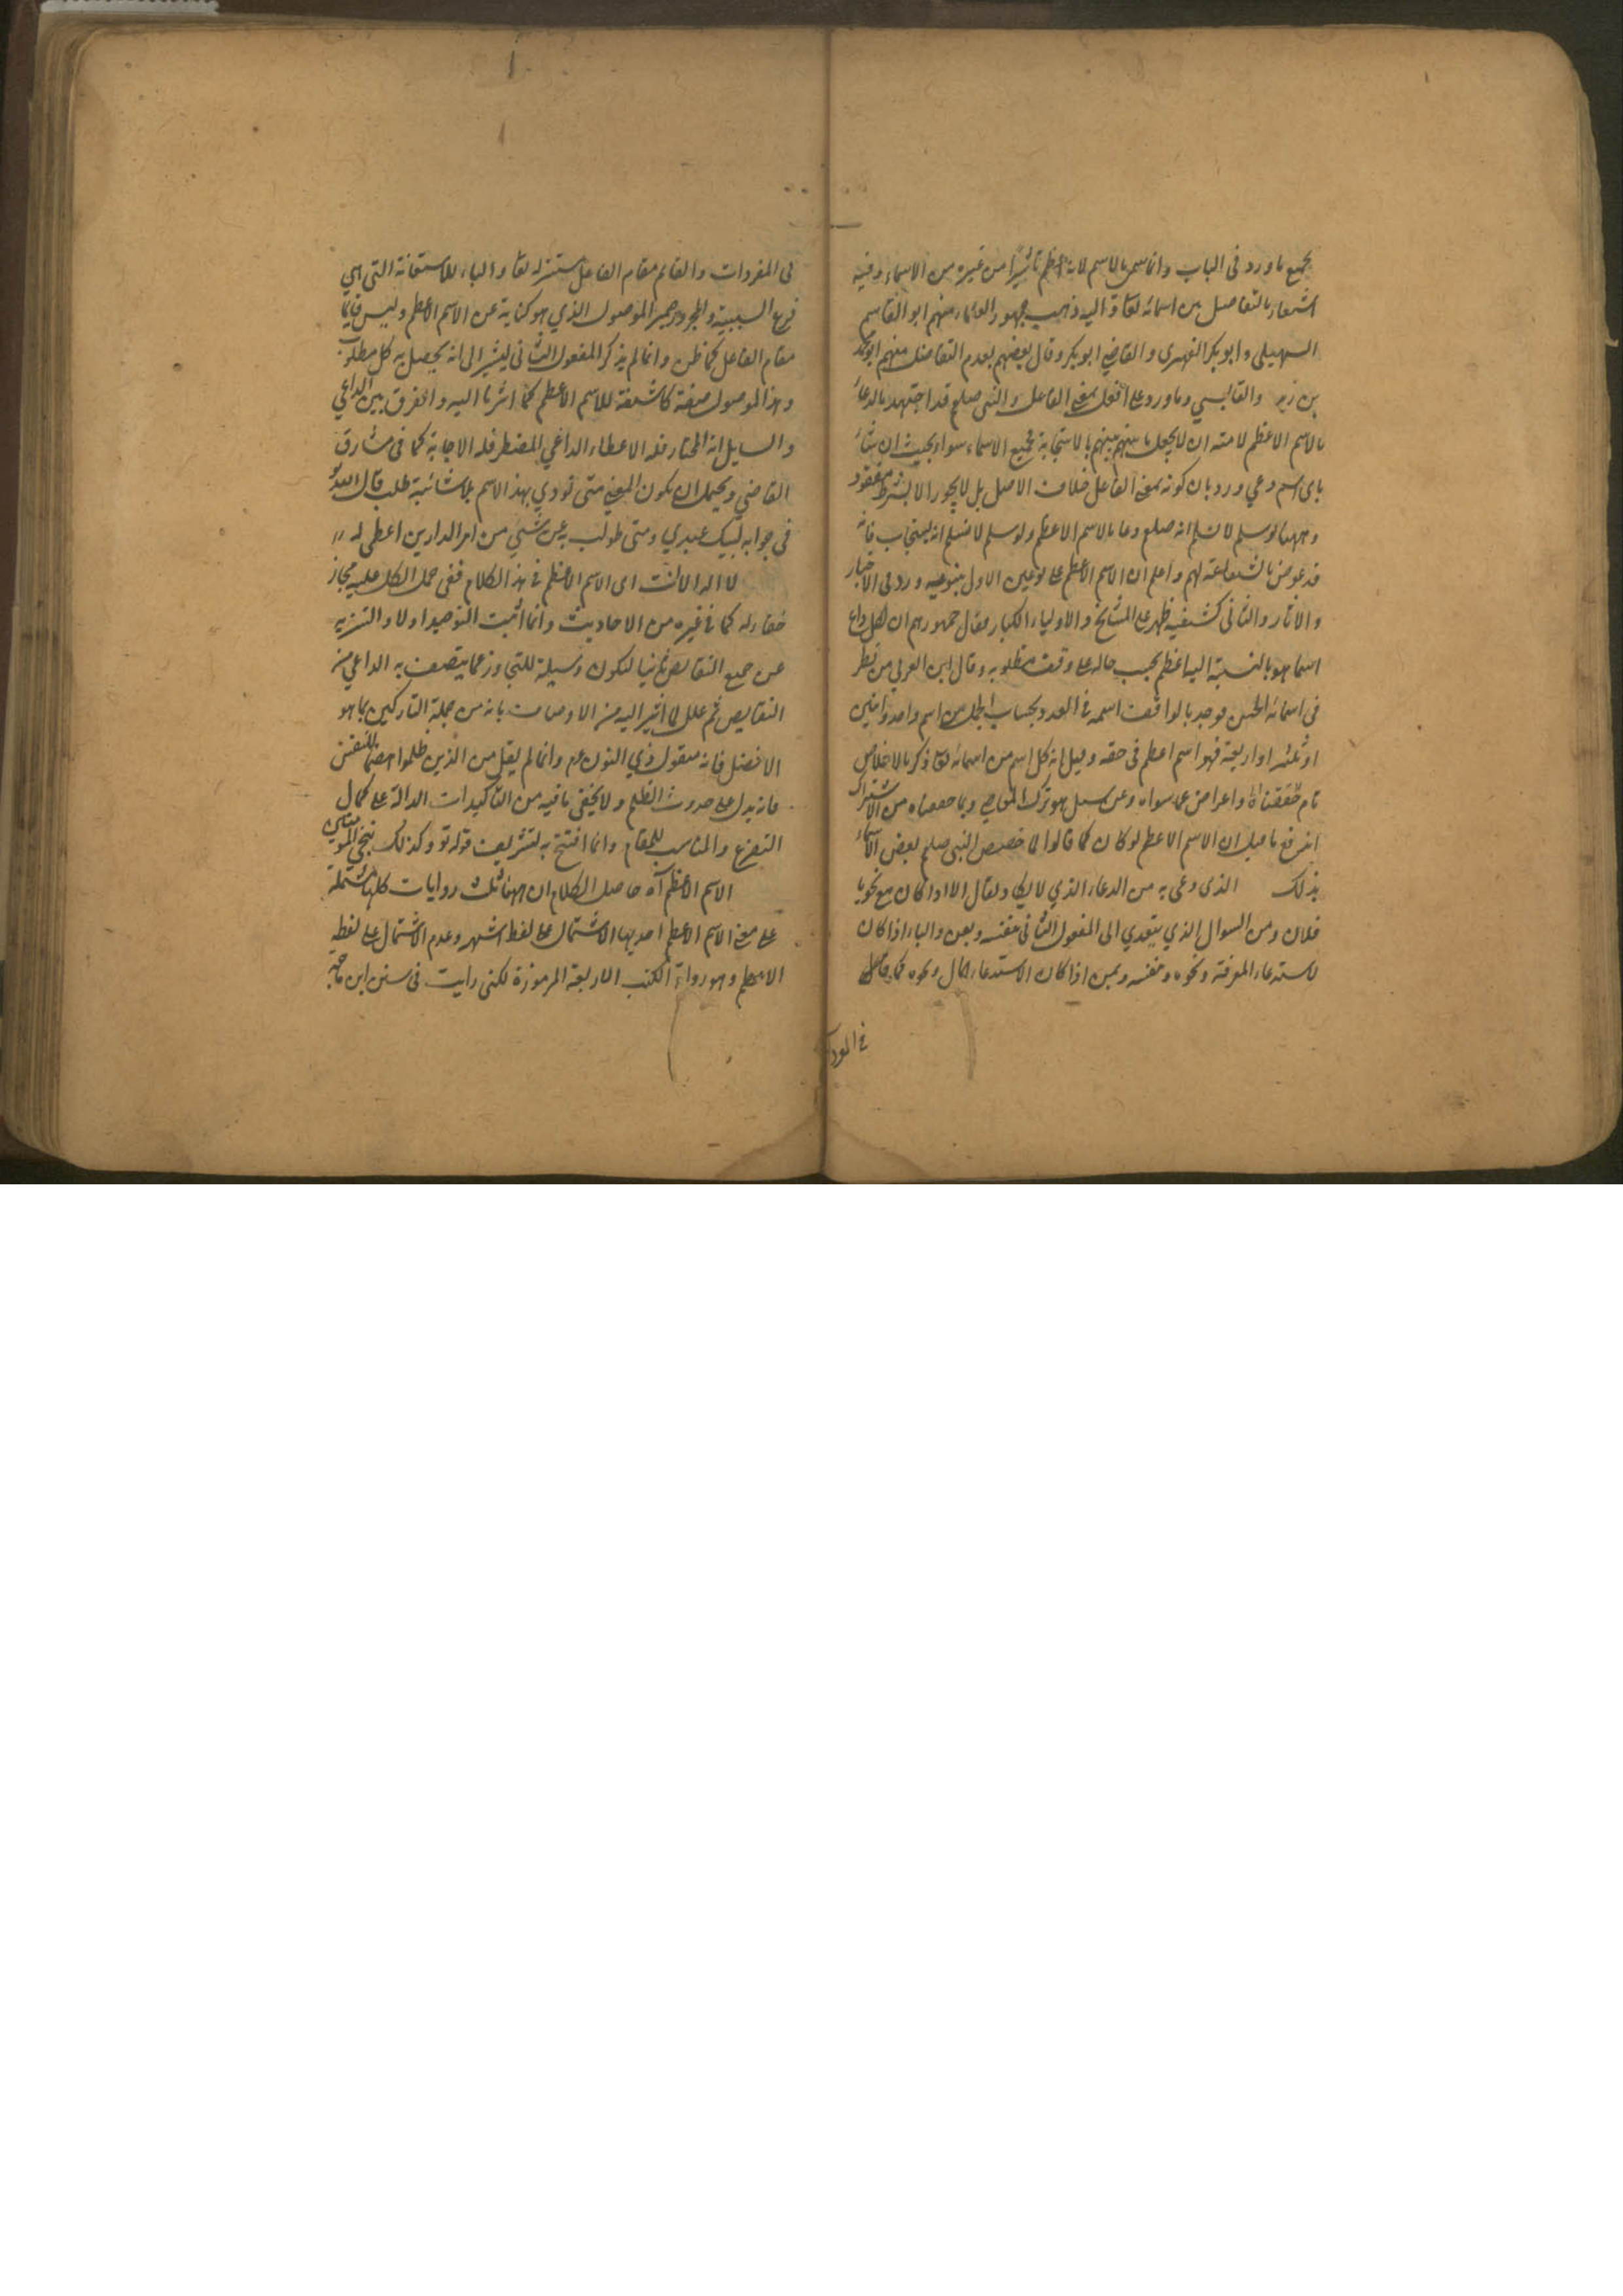 بجميع ما ورد فى الباب وانما سمى بالاسم لانه اعظم تاثيرا من غيره من الاسماء وفيه
اشعار بالتفاضل بين اسمائه تعا واليه ذهب جمهور العلماء منهم ابو القاسم
السهيلى وابو بكر الفهرى والقاضى ابو بكر وقال بعضهم بعدم التفاضل منهم ابو محمد
بن زيد والقابسي وما ورد على افعل بمعنى الفاعل والنبى صلعم قد اجتهد بالدعاء
بالاسم الاعظم لامته ان لا يجعل باسهم بينهم بالاستجابة فجميع الاسماء سواء بحيث ان شاء
باى اسم دعي ورد بان كونه بمعنى الفاعل خلاف الاصل بل لا يجوز الا بشرط مفقود
وههنا لو سلم لا نسلم انه صلعم دعا بالاسم الاعظم ولو سلم لا نسلم انه ليستجاب فانه
قد عوض بالشفاعة لهم واعلم ان الاسم الاعظم على نوعين الاول بنوعيه ورد فى الاخبار
والاثار والثانى كشفيه ظهر على المشايخ والاولياء الكبار فقال جمهورهم ان لكل داع
اسما هو بالنسبة اليه اعظم بحسب حاله على وقت مطلوبه وقال ابن العربى من نظر
فى اسمائه الحسنى فوجد بالواقعت اسمه فى العدد بحساب الجمل من اسم واحد واثنين
او ثلثه او اربعة فهو اسم اعظم فى حقه وقيل انه كل اسم من اسمائه تعا ذكر بالاخلاص
تام واعراض عما سواه وعن سهل هو ترك المعاصى وبما حققناه من الاشتراك
اندفع ما قيل ان الاسم الاعظم لو كان كما قالوا لما خصص النبى صلعم بعض الاسماء
بذلك الذى دعى به من الدعاء الذي ولا يقال الا اذا كان مع نحو يا
فلان ومن السوال الذي يتعدي الى المفعول الثانى بنفسه وبعن والباء اذا كان
لاستدعاء المعرفة ونحوه وبنفسه وبمن اذا كان الاستدعاء المال ونحوه كما حقق
فى المفرد
فى المفردات والقائم مقام الفاعل مستتر له تعا والباء للاستعانة التى هى
فرع السببية والمجرور ضمير الموصول الذي هو كناية عن الاسم الاعظم وليس قايما
مقام الفاعل كما ظن وانما لم يذكر المفعول الثانى ليشير الى انه يحصل به كل مطلوب
وهذا الموصول صفة كاشفة للاسم الاعظم كما اشرنا اليه والفرق بين الداعي
والسايل انه المختار فله الاعطاء الداعي المضطر فله الاجابة كما فى مشارق
القاضي ويحتمل ان يكون المعنى متى نودي بهذا الاسم بلا شائبة طلب قال الله تعو
فى جوابه لبيك عبدي ومتى طولب به عن شيء من امر الدارين اعطى له //
لا اله الا انت اى الاسم الاعظم فى هذا الكلام ففى حمل الكل عليه مجاز
خفاء له كما فى غيره من الاحاديث وانما اثبت التوحيد اولا والتنزيه
عن جميع النقائص ثانيا ليكون وسيلة للتجاوز عما يتصف به الداعي من
النقايص ثم علل لما اشير اليه من الاوصاف بانه من جملة التاركين بما هو
الافضل فانه منقول ذي النون عم وانما لم يقل من الذين ظلموا هضما لنفسه
فانه يدل على حدوث الظلم ولا يخفى ما فيه من التاكيدات الدالة على كمال
التضرع والمناسب للمقام وانما افتتح به لتشريف قوله تو وكذلك ننجي المؤمنين
الاسم الاعظم آه حاصل الكلام ان ههنا ثلث روايات كلها مشتملة
على معنى الاسم الاعظم احديها الاشتمال على لفظ اشهر وعدم الاشتمال على لفظه
الاعظم وهو رواية الكتب الاربعة المرموزة لكنى رايت فى سنن ابن ماجه